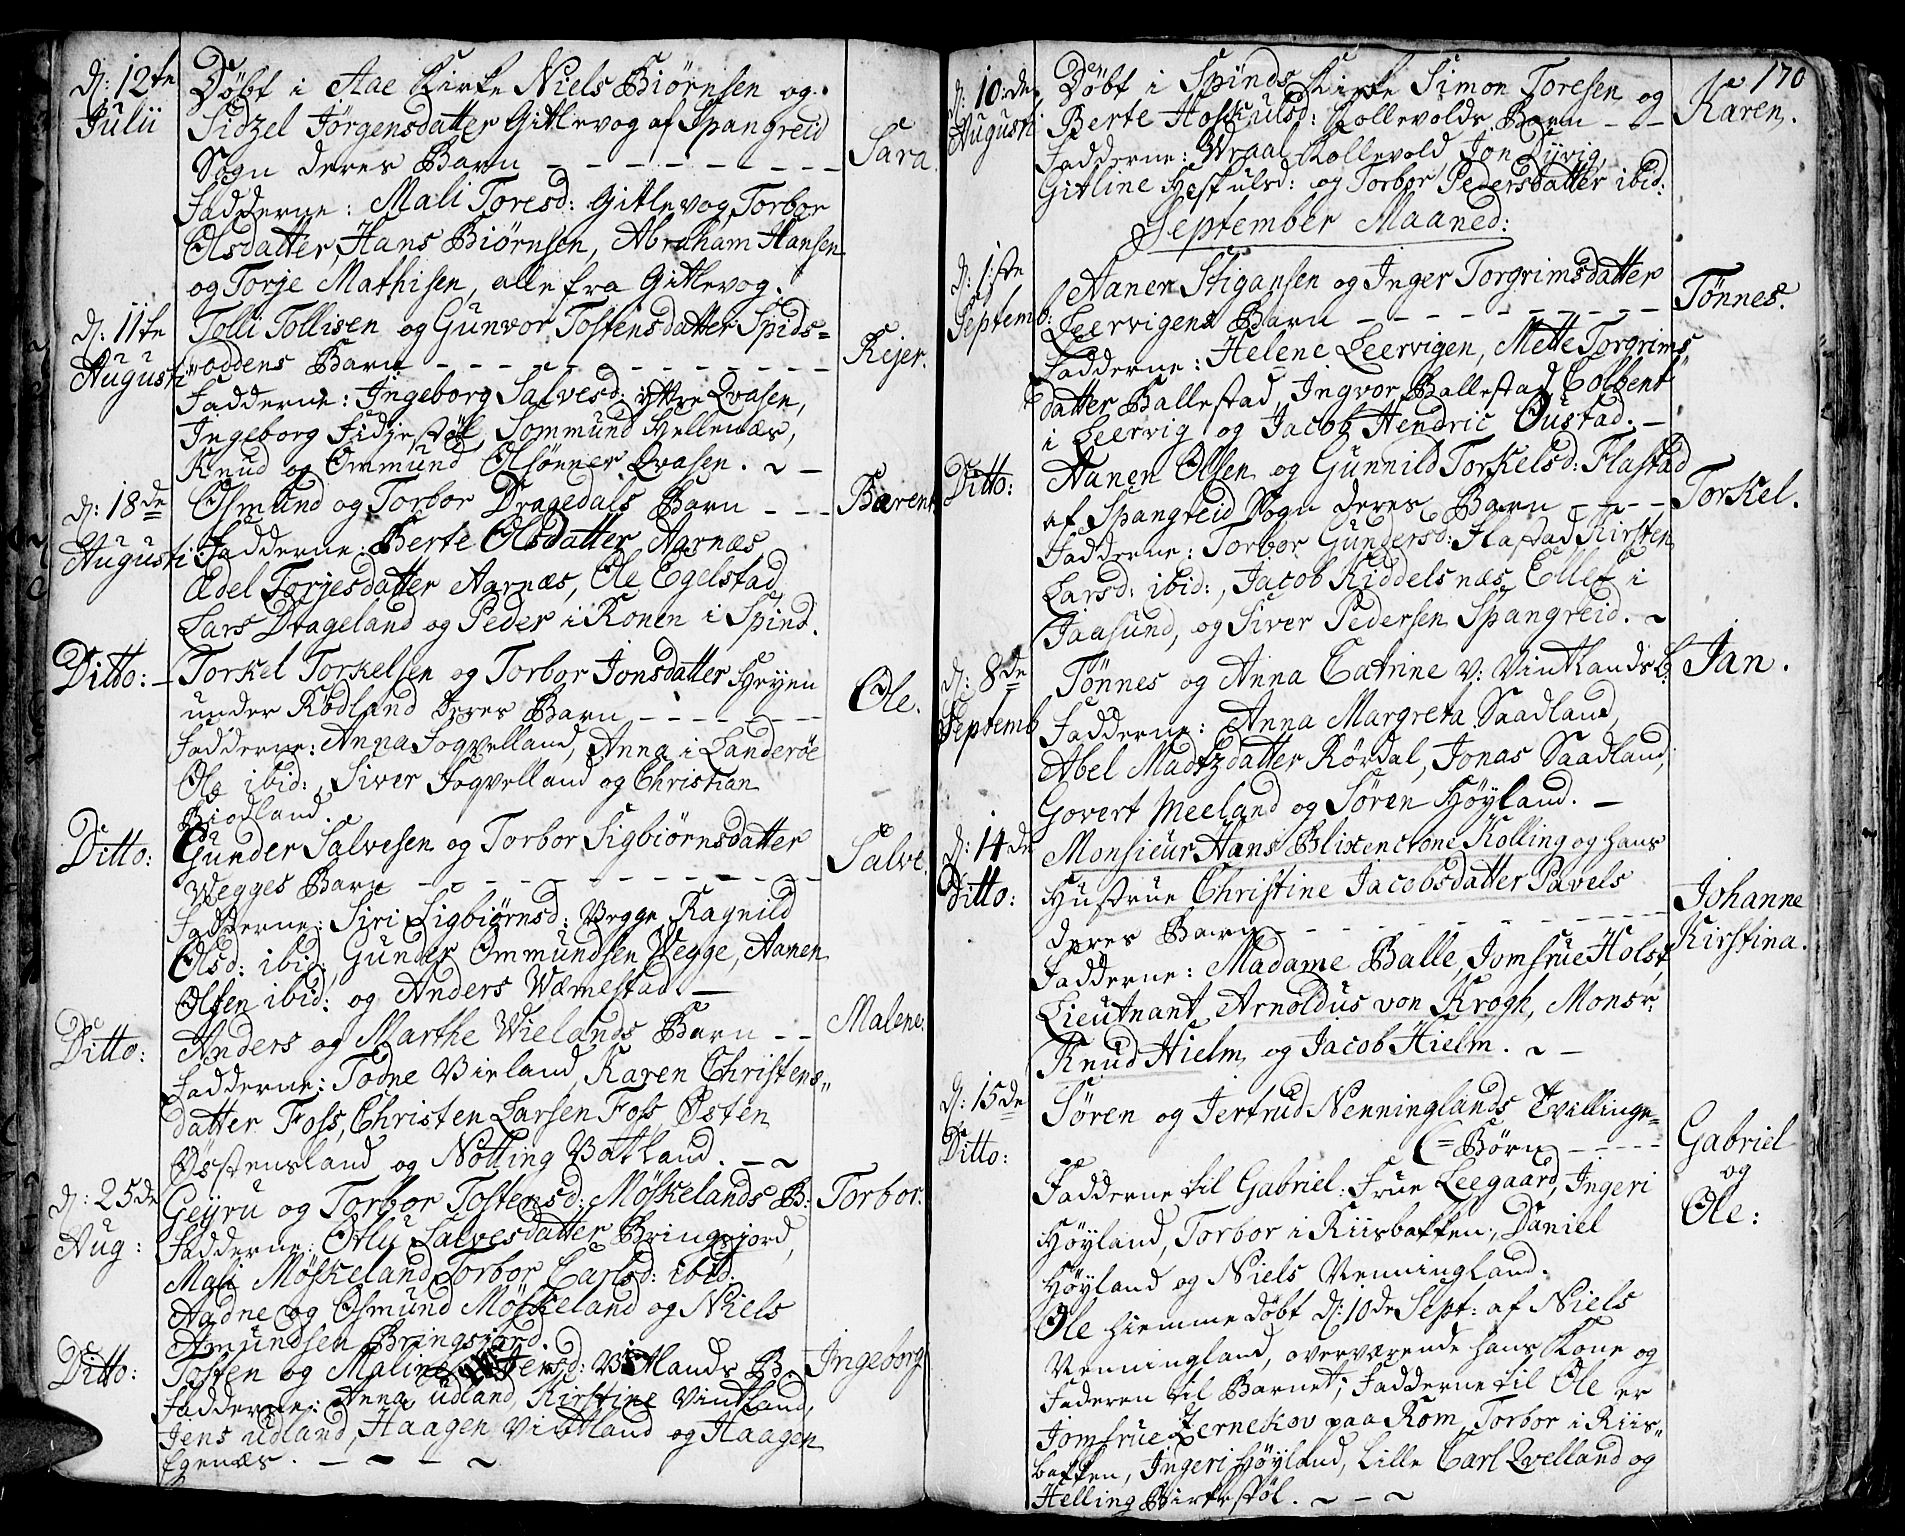 d: 12te Julii
Döbt i Aae Kirke Niels Biörnsen og
Sidzel Jörgensdatter Gitlevog af Spangreid
Sogn deres Barn - - - - - - - - Sara.
Fadderne: Mali Toresd: Gitlevog, Torbor
Olsdatter, Hans Biörnsen, Abraham Hansen
og Torje Mathisen, alle fra Gitlevog.
d: 11te Augusti
Tolli Tollisen og Gunvor Tostensdatter Spids=
oddens Barn - - - - - - - - - - Rejer.
Fadderne: Ingeborg Salvesd: yttre Qvasen,
Ingeborg Fidjestöl, Sommund Hellenæs,
Knud og Ommund Olsönner Qvasen. ~ -
d: 18de Augusti
Osmund og Torbor Dragedals Barn - - - Bærent
Fadderne: Berte Olsdatter Aarnæs,
Ædel Torjesdatter Aarnæs, Ole Egelstad,
Lars Drageland og Peder i Ronen i Spind.
Ditto: -
Torkel Torkelsen og Torbor Jonsdatter Heyen
under Rödland deres Barn - - - - - - - Ole.
Fadderne: Anna Foqvelland, Anna i Landeröe
Ole ibid:, Siver Foqvelland og Christian
Biodland.
Ditto:
Gunder Salvesen og Torbor Sigbiörnsdatter
Wegges Barn - - - - - - - - - - - Salve.
Fadderne: Siri Sigbiörnsd: Vegge, Ragnild
Olsd: ibid: Gunder Ommundsen Vegge, Aanen
Olsen ibid: og Anders Wæmestad. -
Ditto:
Anders og Marthe Wielands Barn - - Malene:
Fadderne: Todne Vieland, Karen Christens=
datter Foss, Christen Larsen Foss, Østen
Østensland og Nötting Vatland. - ~
d: 25de Aug:
Geyru og Torbor Tostensd: Möskelands B: Torbor.
Fadderne: Otlu Salvesdatter Bringsjord,
Mali Möskeland, Torbor Carlsd: ibid.
Aadne og Osmund Möskeland og Niels
Amundsen Bringsjord.
Ditto:
Tosten og Maline Vintlands B. Ingeborg
Fadderne: Anna udland, Kirstine Vintland,
Jens udland, Haagen Vintland og Haagen
Egenæs. - ~ - ~
170
d: 10de Augusti
Döbt i Spinds Kirke Simon Toresen og
Berte Hoskulsd: Kollevolds Barn - - Karen.
Fadderne: Wraal Kollevold, Jon Dyvig,
Gitline Hoskulsd: og Torbor Pedersdatter ibid:
September Maaned:
d: 1ste Septemb:
Aanen Stigansen og Inger Torgrimsdatter
Leervigens Barn - - - - - - - - - - Tönnes.
Fadderne: Helene Leervigen, Mette Torgrims=
datter Ballestad, Ingvor Ballestad, Colbent
i Leervig og Jacob Hendric Oustad. -
Ditto:
Aanen Olsen og Gunnild Torkelsd: Flastad
af Spangreid Sogn deres Barn - - - - Torkel.
Fadderne: Torbor Gundersd: Flastad, Kirsten
Larsd: ibid:, Jacob Kiddelsnæs, Ellef i
Jaasund, og Siver Pedersen Spangreid. ~
d: 8de Septemb
Tönnes og Anna Catrine v: Vintlands B: Jan.
Fadderne: Anna Margreta Saadland,
Abel Madtzdatter Rördal, Jonas Saadland,
Govert Meeland og Sören Höyland. -
d: 14de Ditto:
Monsieur Hans Blixencrone Kolling og hans
Hustrue Christine Jacobsdatter Pavels
deres Barn - - - - - - - - - - Johanne Kirstina.
Fadderne: Madame Balle, Jomfrue Holst,
Lieutnant Arnoldus von Krogh, Monsr:
Knud Hielm, og Jacob Hielm. ~ -
d: 15de Ditto:
Sören og Jertrud Nenninglands Tvillinge=
(=Börn - - - - Gabriel og Ole:
Fadderne til Gabriel: Frue Leegaard, Ingeri
Höyland, Torbor i Riisbakken, Daniel
Höyland og Niels Nenningland.
Ole hiemme döbt d: 10de Sept: af Niels
Nenningland, overværende hans Kone og
Faderen til Barnet; Fadderne til Ole er
Jomfrue Zernekov paa Rom, Torbor i Riis=
bakken, Ingeri Höyland, Lille Carl Qvelland og
Helling Birkestöl. ~ - ~